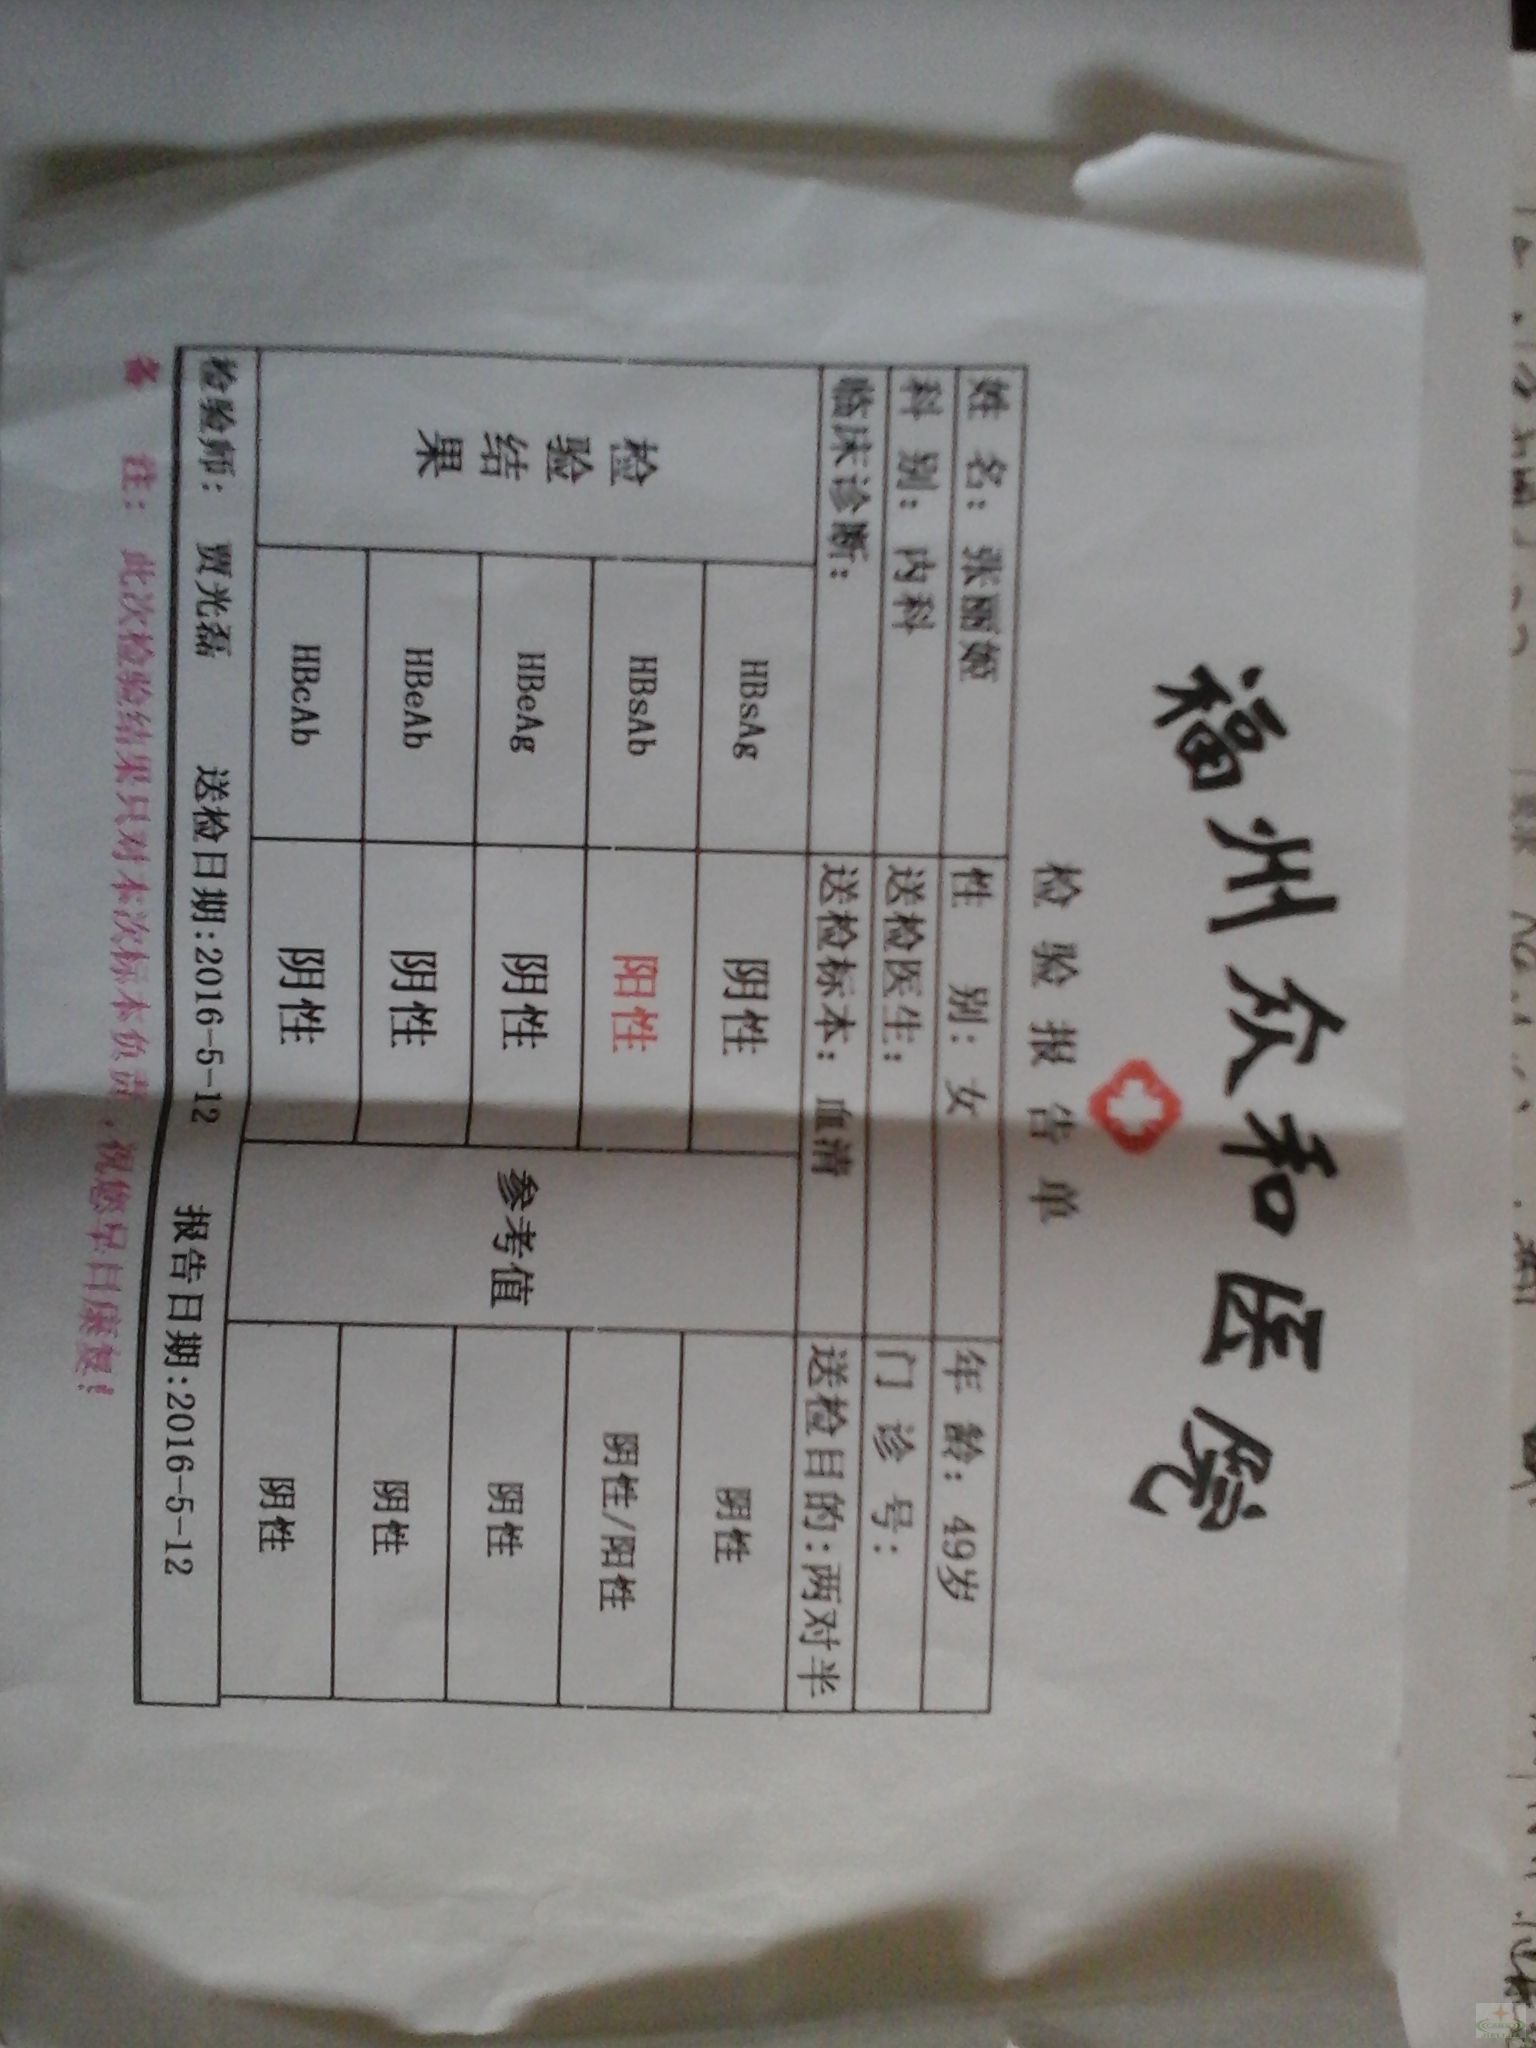 福州众和医院
检验报告单
姓 名：张丽姬 性 别：女 年 龄：49岁
科 别：内科 送检医生： 门 诊 号：
临床诊断： 送检标本：血清 送检目的：两对半
检验结果 参考值
HBsAg 阴性 阴性
HBsAb 阳性 阴性/阳性
HBeAg 阴性 阴性
HBeAb 阴性 阴性
HBcAb 阴性 阴性
检验师：贾光磊 送检日期:2016-5-12 报告日期:2016-5-12
备 注：此次检验结果只对本次标本负责，祝您早日康复！